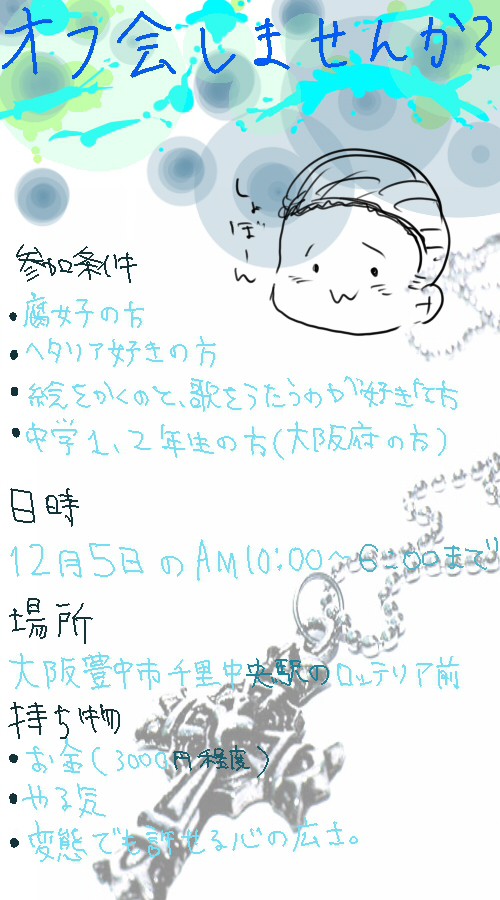 オフ会しませんか?
しょぼーん
参加条件
・腐女子の方
・ヘタリア好きの方
・絵をかくのと、歌をうたうのが好きな方
・中学1、2年生の方(大阪府の方)
日時
12月5日のAM10:00~6:00まで
場所
大阪豊中市千里中央駅のロッテリア前
持ち物
・お金(3000円程度)
・やる気
・変態でも許せる心の広さ。